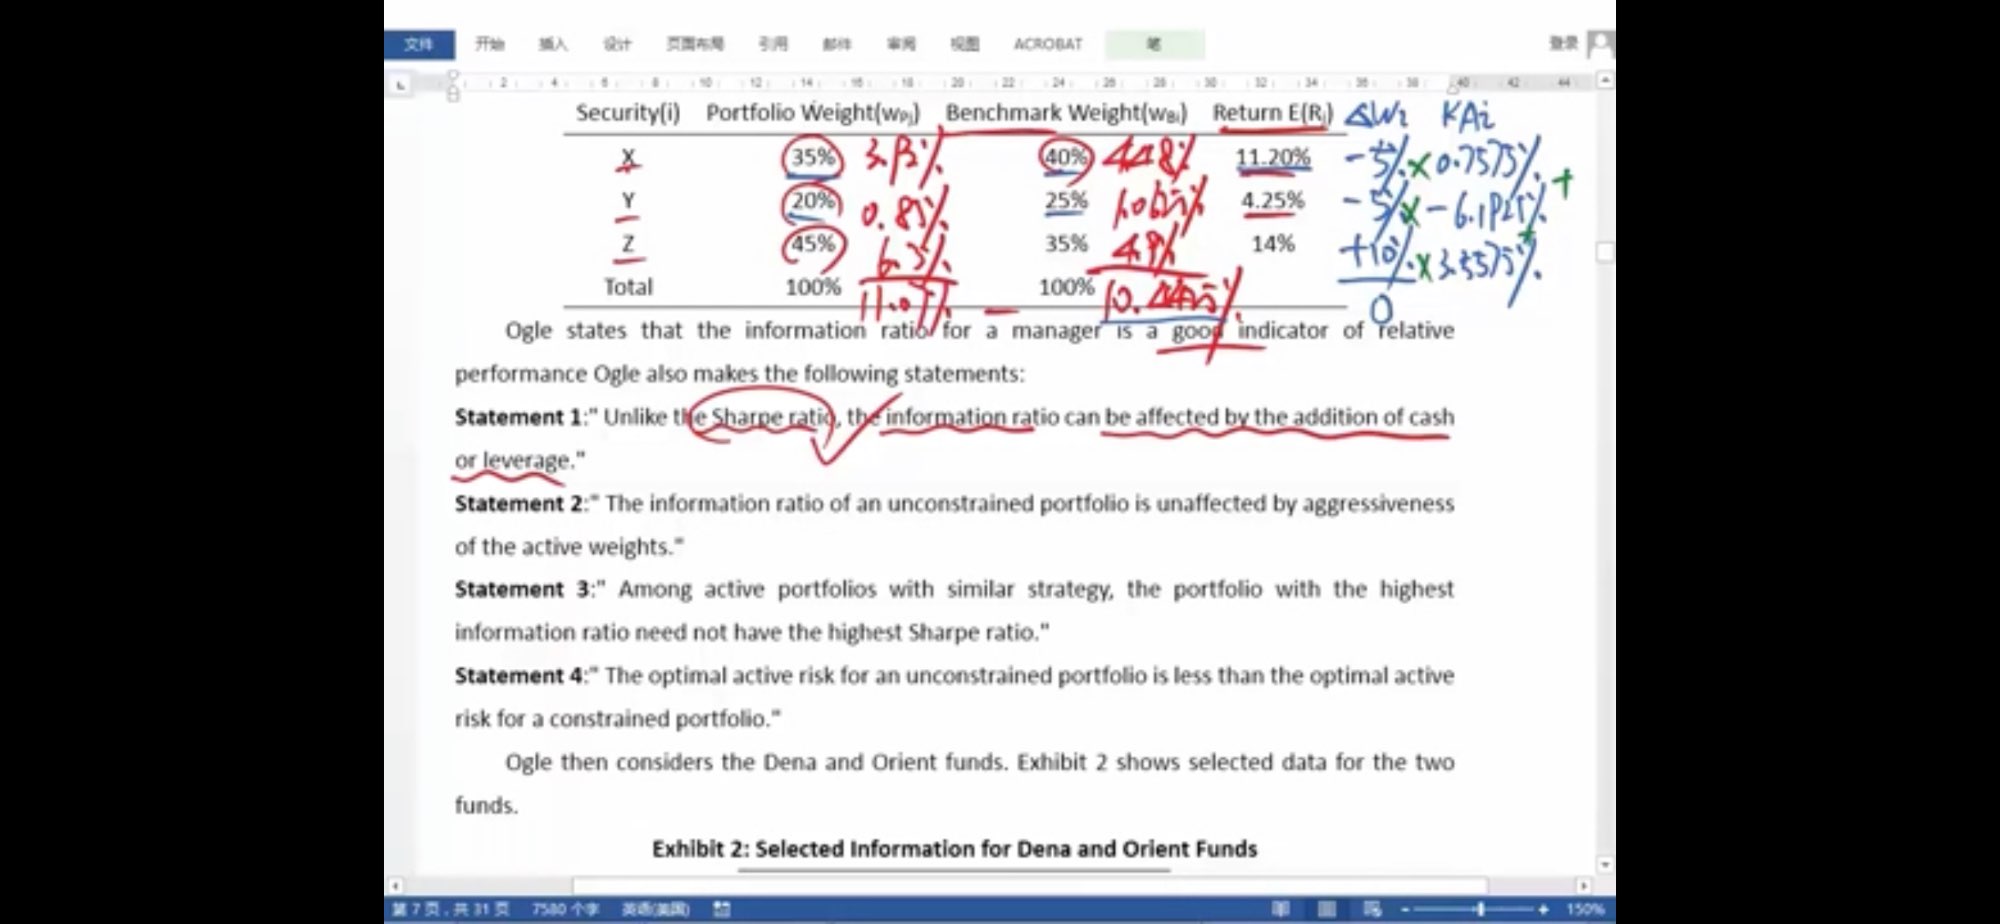 文件 开始 插入 设计 页面布局 引用 邮件 审阅 视图 ACROBAT 笔 登录
2 4 6 8 10 12 14 16 18 20 22 24 26 28 30 32 34 36 38 40 42 44
Security(i) Portfolio Weight(wPj) Benchmark Weight(wBi) Return E(Ri) ΔWi RAi
X 35% 3.92% 40% 4.48% 11.20% -5% × 0.7575% +
Y 20% 0.85% 25% 1.0625% 4.25% -5% × -6.1925% +
Z 45% 6.3% 35% 4.9% 14% +10% × 3.5575%
Total 100% 11.07% - 100% 10.4425% 0
Ogle states that the information ratio for a manager is a good indicator of relative
performance Ogle also makes the following statements:
Statement 1:" Unlike the Sharpe ratio, the information ratio can be affected by the addition of cash
or leverage."
Statement 2:" The information ratio of an unconstrained portfolio is unaffected by aggressiveness
of the active weights."
Statement 3:" Among active portfolios with similar strategy, the portfolio with the highest
information ratio need not have the highest Sharpe ratio."
Statement 4:" The optimal active risk for an unconstrained portfolio is less than the optimal active
risk for a constrained portfolio."
Ogle then considers the Dena and Orient funds. Exhibit 2 shows selected data for the two
funds.
Exhibit 2: Selected Information for Dena and Orient Funds
第 7 页，共 31 页 7580 个字 英语(美国) 150%